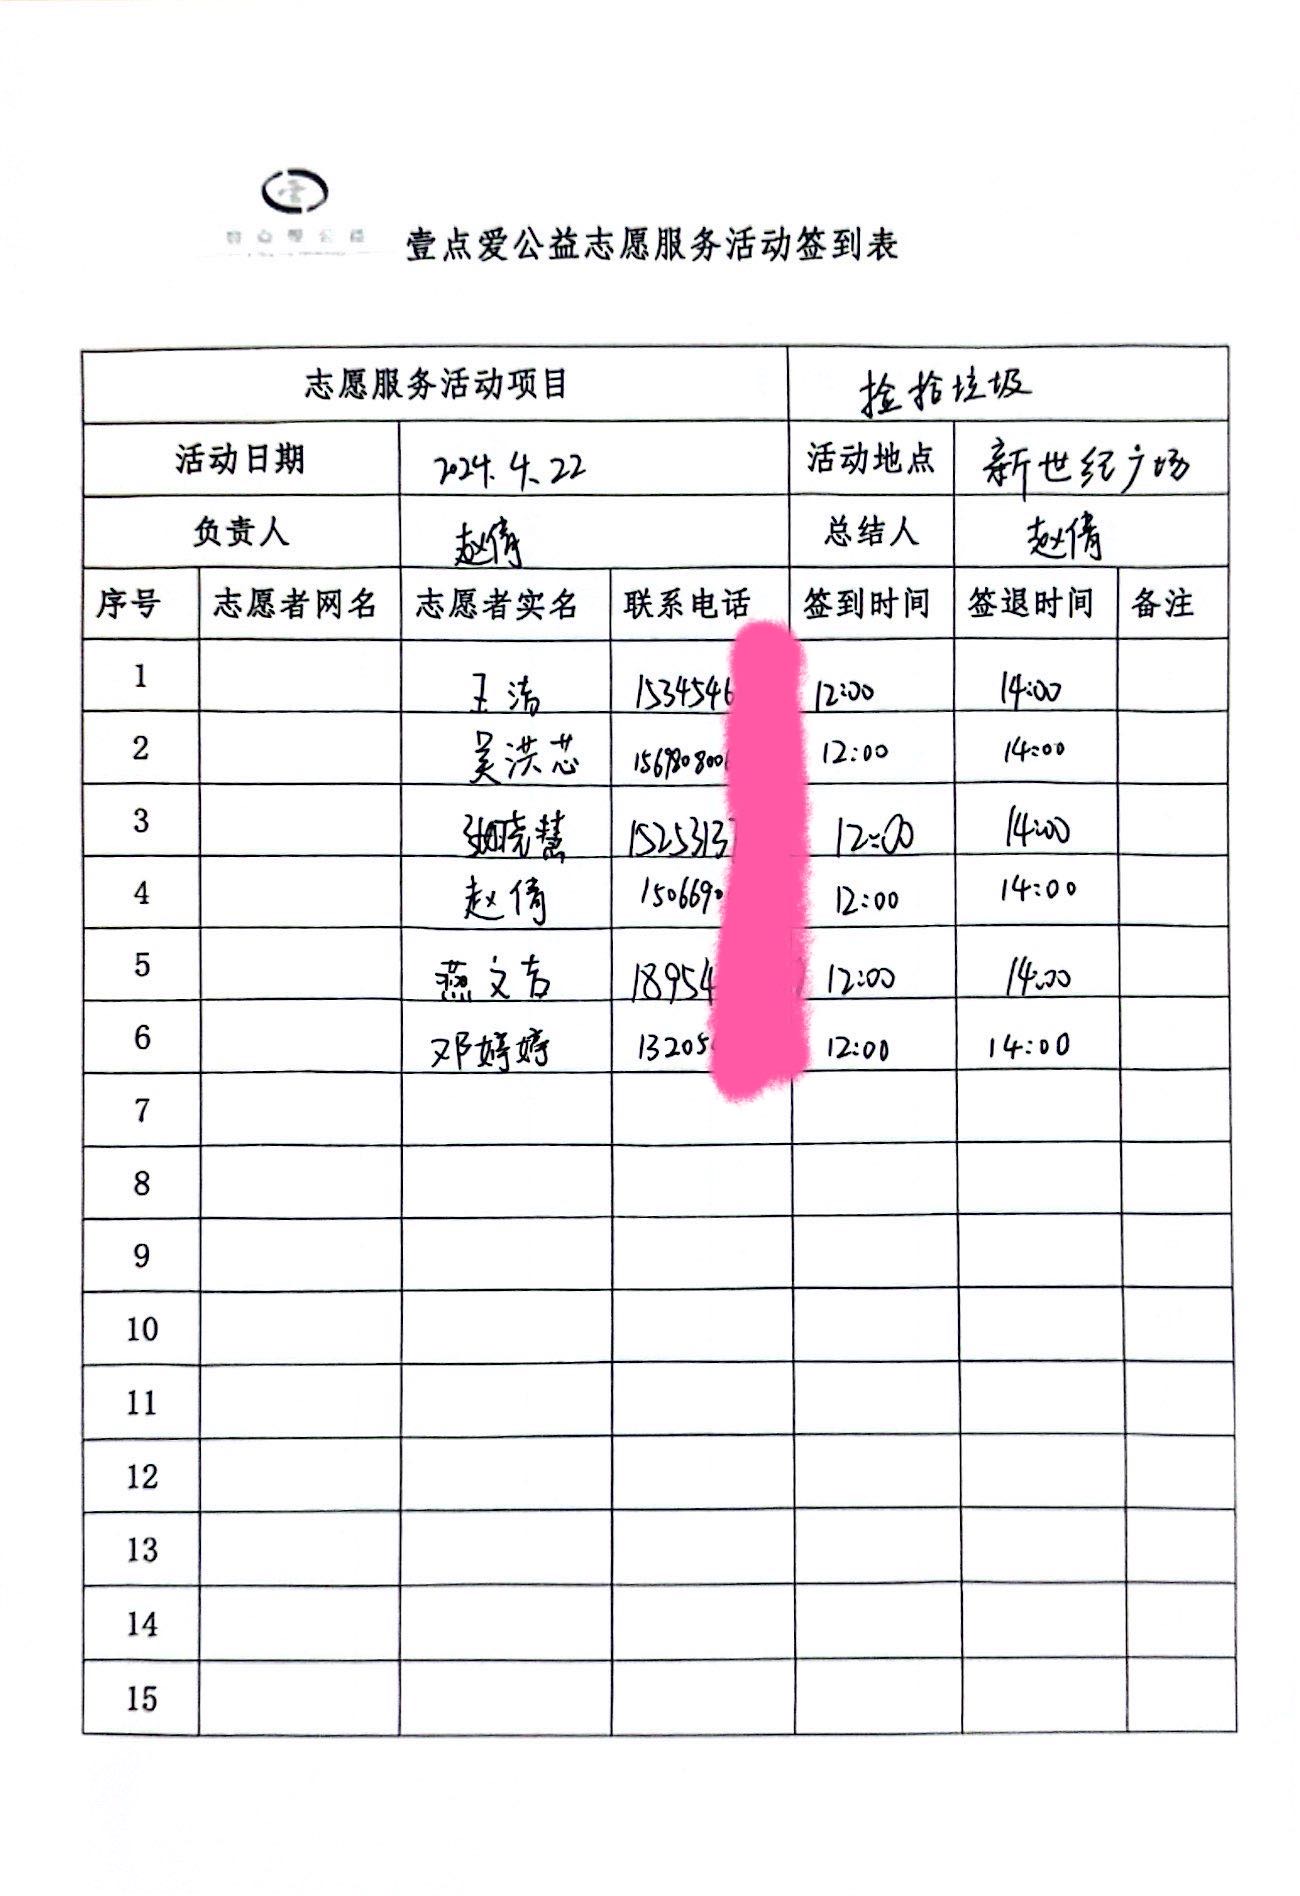 壹点爱公益
壹点爱公益志愿服务活动签到表
志愿服务活动项目 捡拾垃圾
活动日期 2024.4.22 活动地点 新世纪广场
负责人 赵倩 总结人 赵倩
序号 志愿者网名 志愿者实名 联系电话 签到时间 签退时间 备注
1 王 1534546 12:00 14:00
2 吴洪芯 156980800 12:00 14:00
3 晓慧 1525313 12:00 14:00
4 赵倩 1506690 12:00 14:00
5 燕文吉 18954 12:00 14:00
6 邓婷婷 13205 12:00 14:00
7
8
9
10
11
12
13
14
15